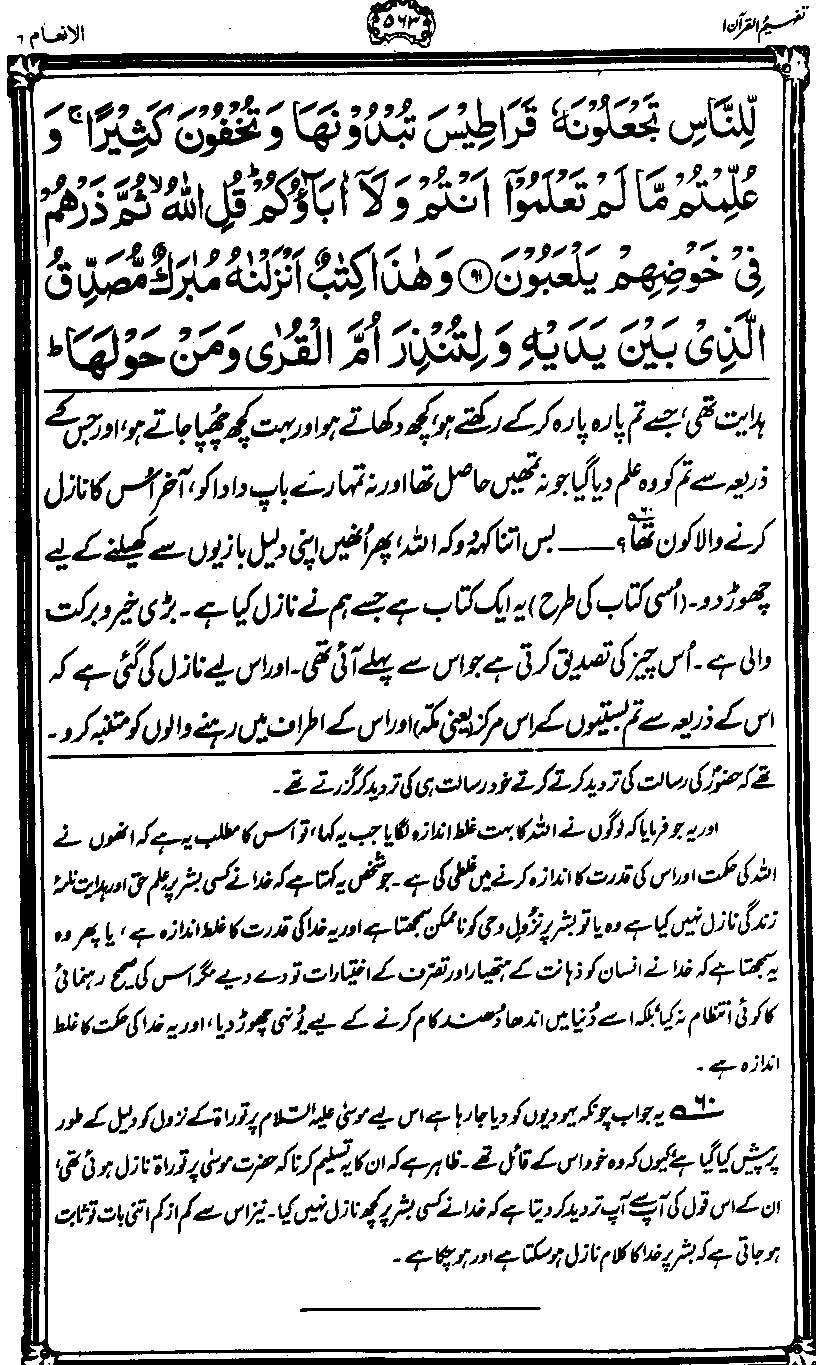 تفہیمُ القرآن ۱
۵۶۳
الانعام ۶
لِلنَّاسِ تَجْعَلُوْنَهٗ قَرَاطِيْسَ تُبْدُوْنَهَا وَتُخْفُوْنَ كَثِيْرًا ۚ وَ
عُلِّمْتُمْ مَّا لَمْ تَعْلَمُوْٓا اَنْتُمْ وَلَآ اٰبَآؤُكُمْ ؕ قُلِ اللّٰهُ ۙ ثُمَّ ذَرْهُمْ
فِيْ خَوْضِهِمْ يَلْعَبُوْنَ ﴿۹۱﴾ وَهٰذَا كِتٰبٌ اَنْزَلْنٰهُ مُبٰرَكٌ مُّصَدِّقُ
الَّذِيْ بَيْنَ يَدَيْهِ وَلِتُنْذِرَ اُمَّ الْقُرٰى وَمَنْ حَوْلَهَا ؕ
ہدایت تھی، جسے تم پارہ پارہ کرکے رکھتے ہو، کچھ دکھاتے ہو اور بہت کچھ چھپا جاتے ہو، اور جس کے
ذریعہ سے تم کو وہ علم دیا گیا جو نہ تمھیں حاصل تھا اور نہ تمہارے باپ دادا کو، آخر اُس کا نازل
کرنے والا کون تھا؟۶۰ ــــــ بس اتنا کہہ دو کہ اللہ، پھر اُنھیں اپنی دلیل بازیوں سے کھیلنے کے لیے
چھوڑ دو۔ (اُسی کتاب کی طرح) یہ ایک کتاب ہے جسے ہم نے نازل کیا ہے۔ بڑی خیر و برکت
والی ہے۔ اُس چیز کی تصدیق کرتی ہے جو اس سے پہلے آئی تھی۔ اور اس لیے نازل کی گئی ہے کہ
اس کے ذریعہ سے تم بستیوں کے اس مرکز (یعنی مکّہ) اور اس کے اطراف میں رہنے والوں کو متنبہ کرو۔
تھے کہ حضورؐ کی رسالت کی تردید کرتے کرتے خود رسالت ہی کی تردید کر گزرتے تھے۔
اور یہ جو فرمایا کہ لوگوں نے اللہ کا بہت غلط اندازہ لگایا جب یہ کہا، تو اُس کا مطلب یہ ہے کہ انھوں نے
اللہ کی حکمت اور اس کی قدرت کا اندازہ کرنے میں غلطی کی ہے۔ جو شخص یہ کہتا ہے کہ خدا نے کسی بشر پر علم حق اور ہدایت نامۂ
زندگی نازل نہیں کیا ہے وہ یا تو بشر پر نزولِ وحی کو ناممکن سمجھتا ہے اور یہ خدا کی قدرت کا غلط اندازہ ہے، یا پھر وہ
یہ سمجھتا ہے کہ خدا نے انسان کو ذہانت کے ہتھیار اور تصرّف کے اختیارات تو دے دیے مگر اس کی صحیح رہنمائی
کا کوئی انتظام نہ کیا، بلکہ اسے دُنیا میں اندھا دُھند کام کرنے کے لیے یُونہی چھوڑ دیا، اور یہ خدا کی حکمت کا غلط
اندازہ ہے۔
۶۰ یہ جواب چونکہ یہودیوں کو دیا جا رہا ہے اس لیے موسیٰ علیہ السّلام پر توراۃ کے نزول کو دلیل کے طور
پر پیش کیا گیا ہے، کیوں کہ وہ خود اس کے قائل تھے۔ ظاہر ہے کہ ان کا یہ تسلیم کرنا کہ حضرت موسیٰ پر توراۃ نازل ہوئی تھی،
ان کے اس قول کی آپ سے آپ تردید کر دیتا ہے کہ خدا نے کسی بشر پر کچھ نازل نہیں کیا۔ نیز اس سے کم از کم اتنی بات تو ثابت
ہو جاتی ہے کہ بشر پر خدا کا کلام نازل ہو سکتا ہے اور ہو چکا ہے۔